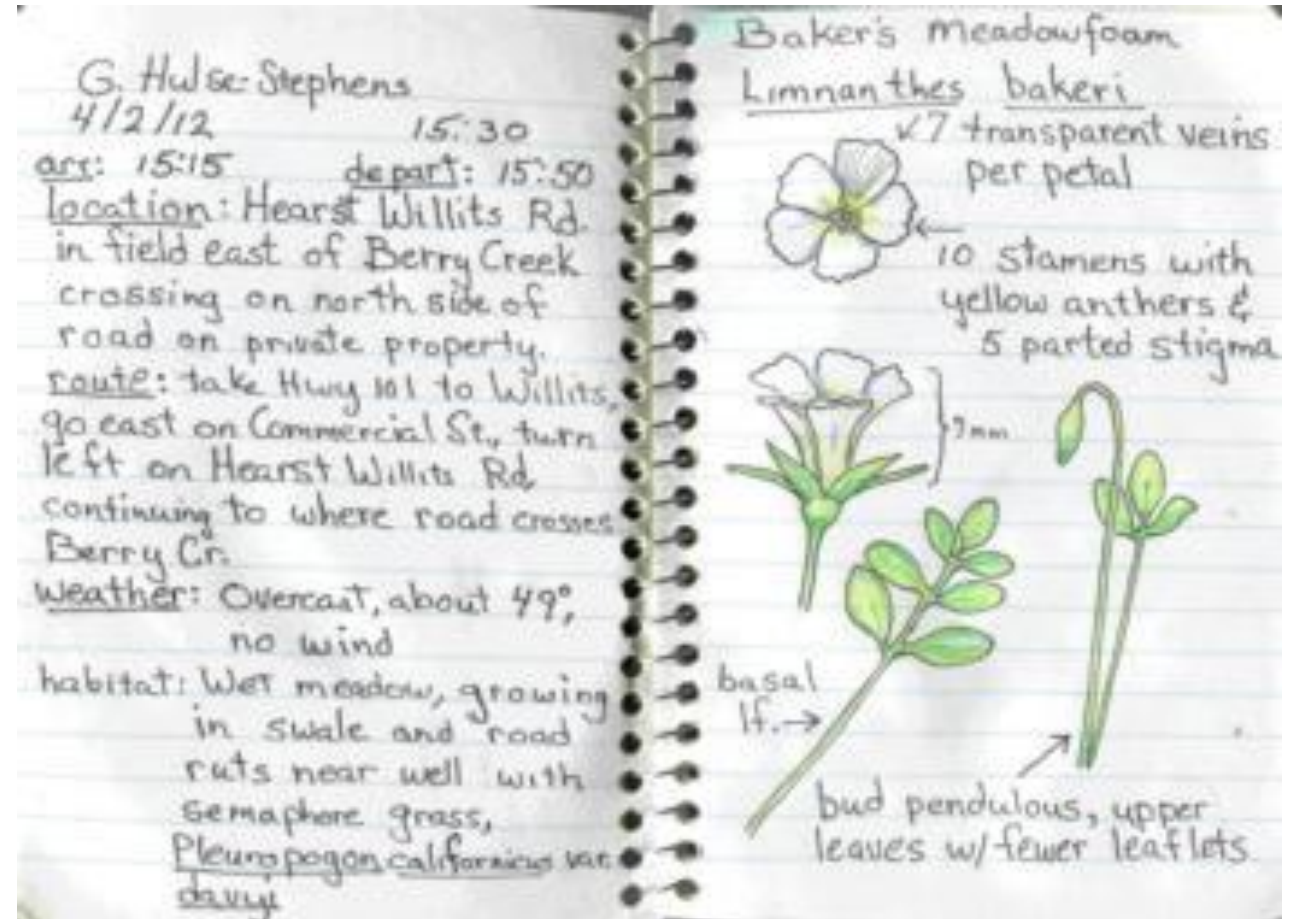 G. Hulse-Stephens
4/2/12 15:30
arr: 15:15 depart: 15:50
location: Hearst Willits Rd.
in field east of Berry Creek
crossing on north side of
road on private property.
route: take Hwy 101 to Willits,
go east on Commercial St., turn
left on Hearst Willits Rd
continuing to where road crosses
Berry Cr.
weather: Overcast, about 49°,
no wind
habitat: Wet meadow, growing
in swale and road
ruts near well with
semaphore grass,
Pleuropogon californicus var.
davyi
Baker's Meadowfoam
Limnanthes bakeri
7 transparent veins
per petal
10 stamens with
yellow anthers &
5 parted stigma
9mm
basal
lf.
bud pendulous, upper
leaves w/ fewer leaflets